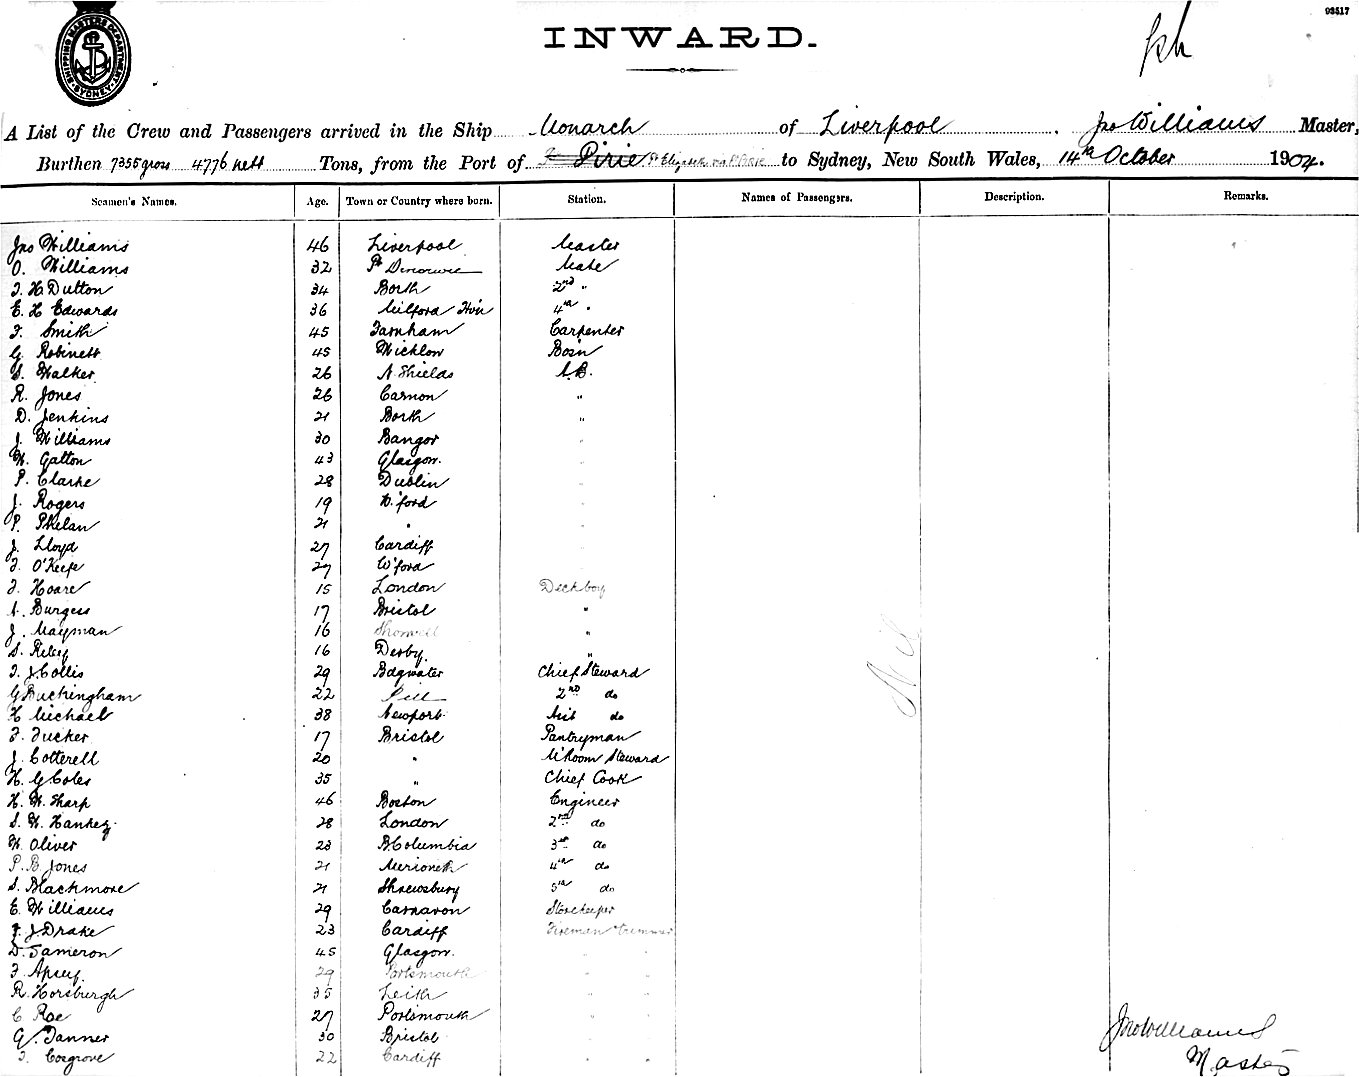 93517
SHIPPING MASTERS DEPARTMENT SYDNEY
INWARD.
A List of the Crew and Passengers arrived in the Ship Monarch of Liverpool. Jno Williams Master,
Burthen 7355 gross 4776 nett Tons, from the Port of Pirie Pt Elizabeth via P. Pirie to Sydney, New South Wales, 14th October 1904.
Seamen's Names. Age. Town or Country where born. Station. Names of Passengers. Description. Remarks.
Jno Williams 46 Liverpool Master
O. Williams 32 Pt Dinorwic Mate
J. H Dutton 34 Borth 2nd "
E. H Edwards 36 Milford Hvn 4th "
F. Smith 45 Farnham Carpenter
G Robinett 45 Wicklow Bosn
S. Walker 26 N. Shields A.B.
R. Jones 26 Carnon "
D. Jenkins 21 Borth "
J. Williams 30 Bangor "
W. Galton 43 Glasgow. "
P. Clarke 28 Dublin "
J. Rogers 19 W'ford "
P. Phelan 21 " "
J. Lloyd 27 Cardiff "
J. O'Keefe 27 W'ford
F. Hoare 15 London Deckboy
A. Burgess 17 Bristol "
J. Mayman 16 Shorwell "
S. Riley 16 Derby. "
F. J. Collis 29 Bdgwater Chief Steward
G Buckingham 22 Pill 2nd do
H Michael 38 Newport. Asst do
F. Tucker 17 Bristol Pantryman
J. Cotterell 20 " M'Room Steward
H. G Coles 35 " Chief Cook
H. W. Sharp 46 Boston Engineer
S. W. Hankey. 28 London 2nd do
W. Oliver 23 B. Columbia 3rd do
P. B. Jones 21 Merioneth 4th do
S. Blackmore 21 Shrewsbury 5th do
E. Williams 29 Carnarvon Storekeeper
F. J. Drake 23 Cardiff Fireman trimmer
D. Jameron 45 Glasgow. " "
F. Apsey. 29 Portsmouth " "
R. Horsburgh 35 Leith " "
C Roe 27 Portsmouth " "
G. Tanner 30 Bristol " "
J. Cosgrove 22 Cardiff " "
Nil
Jno Williams
Master